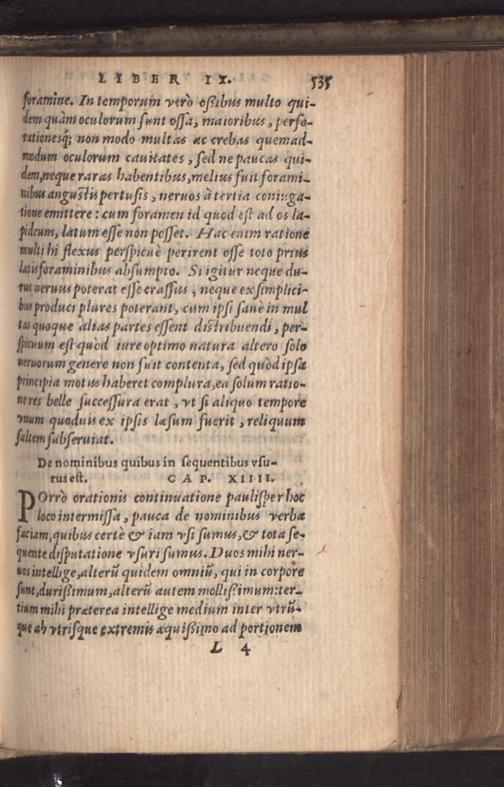 LIBER IX. 535
foramine. In temporum verò oßibus multo qui-
dem quàm oculorum sunt ossa, maioribus, perfo-
rationesq; non modo multas ac crebas quemad-
modum oculorum cauitates, sed ne paucas qui-
dem, neque raras habentibus, melius fuit forami-
nibus angustis pertusis, neruos à tertia coniuga-
tione emittere: cum foramen id quod est ad os la-
pideum, latum esse non posset. Hac enim ratione
multi hi flexus perspicuè perirent osse toto prius
latis foraminibus absumpto. Si igitur neque du-
rus neruus poterat esse crassus, neque ex simplici-
bus produci plures poterant, cum ipsi sanè in mul
tas quoque alias partes essent distribuendi, per-
spicuum est quòd iure optimo natura altero solo
neruorum genere non fuit contenta, sed quòd ipsa
principia motus haberet complura, ea solum ratio-
ne res belle successura erat, vt si aliquo tempore
vnum quoduis ex ipsis læsum fuerit, reliquum
saltem subseruiat.
De nominibus quibus in sequentibus vsu-
rus est. CAP. XIIII.
POrrò orationis continuatione paulisper hoc
loco intermissa, pauca de nominibus verba
faciam, quibus certè & iam vsi sumus, & tota se-
quente disputatione vsuri sumus. Duos mihi ner-
uos intellige, alterũ quidem omniũ, qui in corpore
sunt, durißimum, alterũ autem mollißimum: ter-
tium mihi præterea intellige medium inter vtrũ-
que ab vtrisque extremis æquißimo ad portionem
L 4